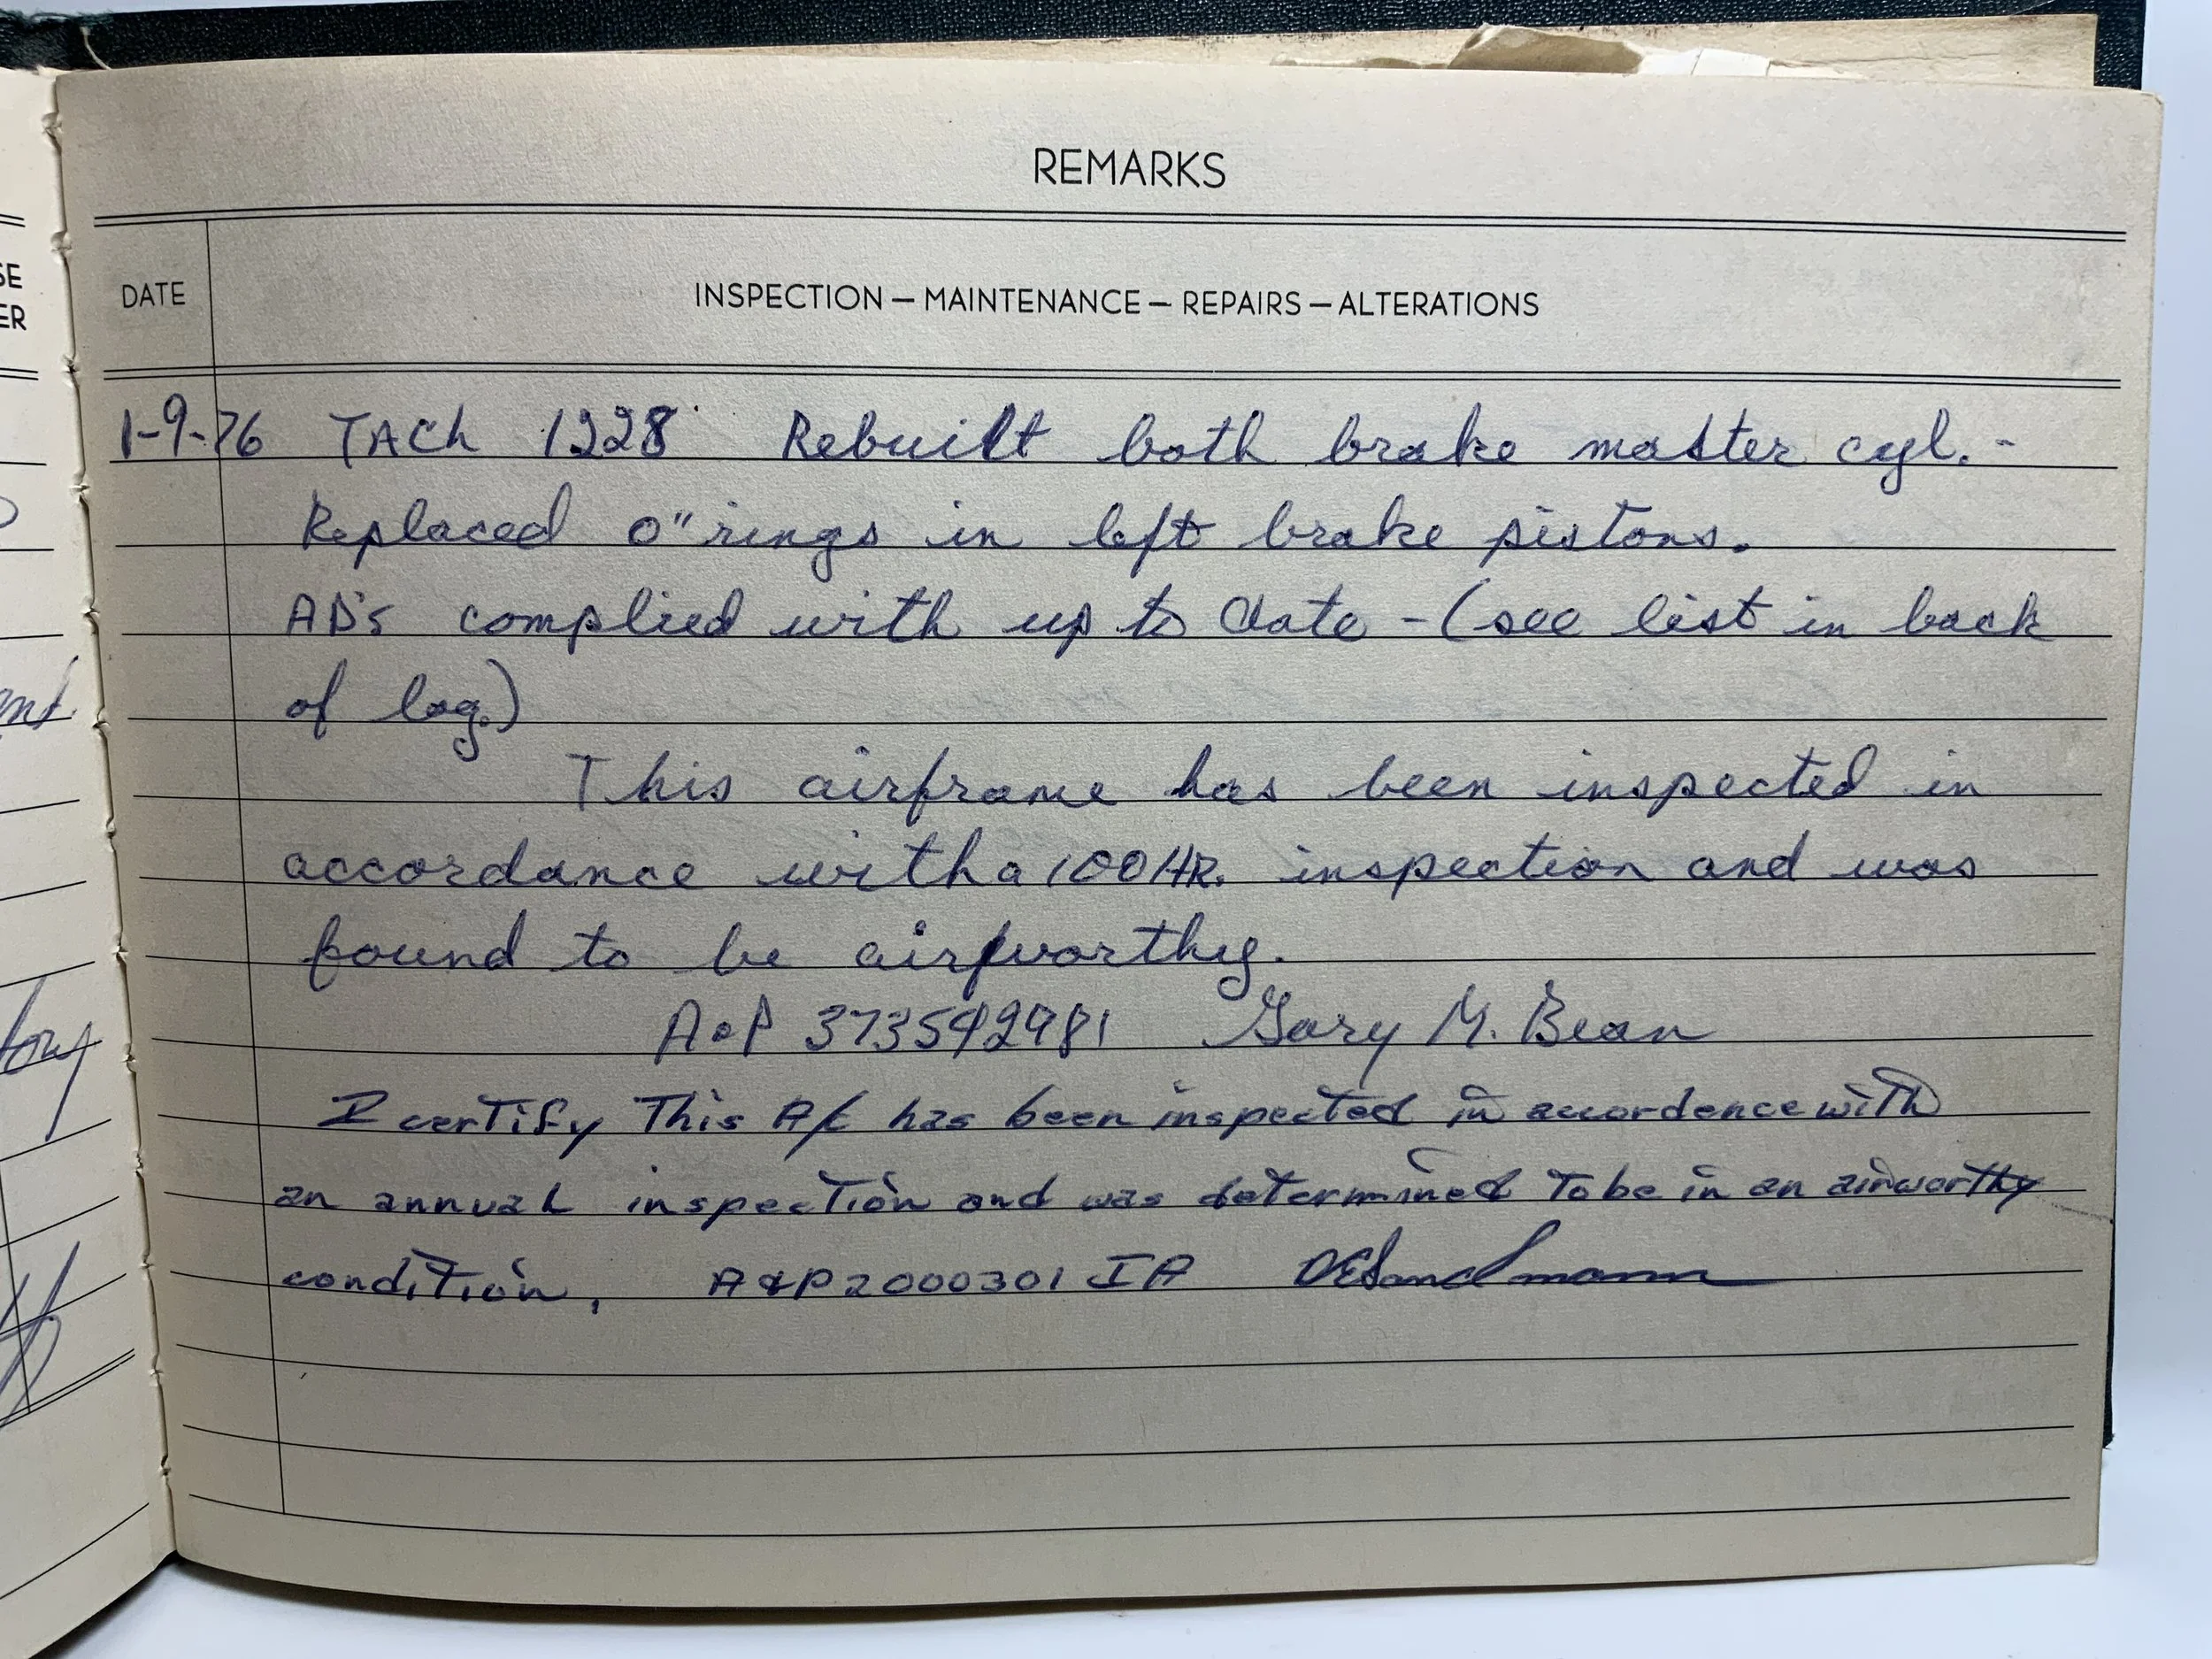 REMARKS
DATE
INSPECTION — MAINTENANCE — REPAIRS — ALTERATIONS
SE
ER
1-9-76 TACh 1228 Rebuilt both brake master cyl. -
Replaced O" rings in left brake pistons.
AD's complied with up to date - (see list in back
of log.)
This airframe has been inspected in
accordance with a 100 HR. inspection and was
found to be airworthy.
A&P 373542981 Gary M. Bean
I certify This A/C has been inspected in accordence with
an annual inspection and was determined To be in an airworthy
condition, A&P 2000301 IA